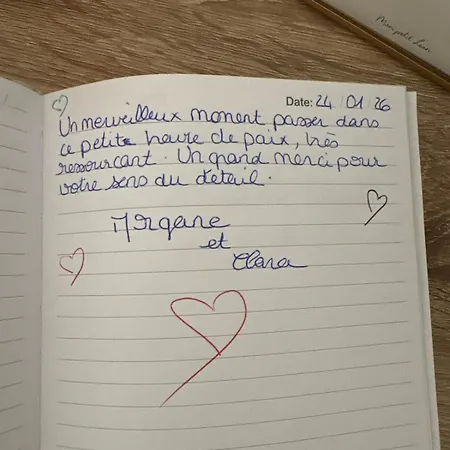 Mon petit Lien
Date: 24 01 26
Un merveilleux moment passer dans
ce petite heure de paix, très
ressourçant. Un grand merci pour
votre sens du détail.
Morgane
et
Clara